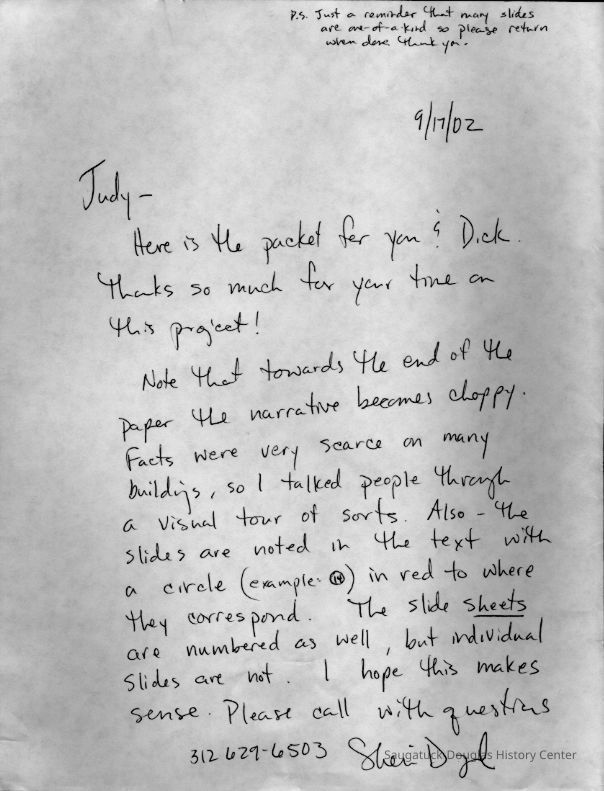 P.S. Just a reminder that many slides
are one-of-a-kind so please return
when done thank you.
9/17/02
Judy-
Here is the packet for you & Dick.
Thanks so much for your time on
this project!
Note that towards the end of the
paper the narrative becomes choppy.
Facts were very scarce on many
buildings, so I talked people through
a visual tour of sorts. Also - the
slides are noted in the text with
a circle (example: 14) in red to where
they correspond. The slide sheets
are numbered as well, but individual
slides are not. I hope this makes
sense. Please call with questions
312 629-6503
Saugatuck-Douglas History Center